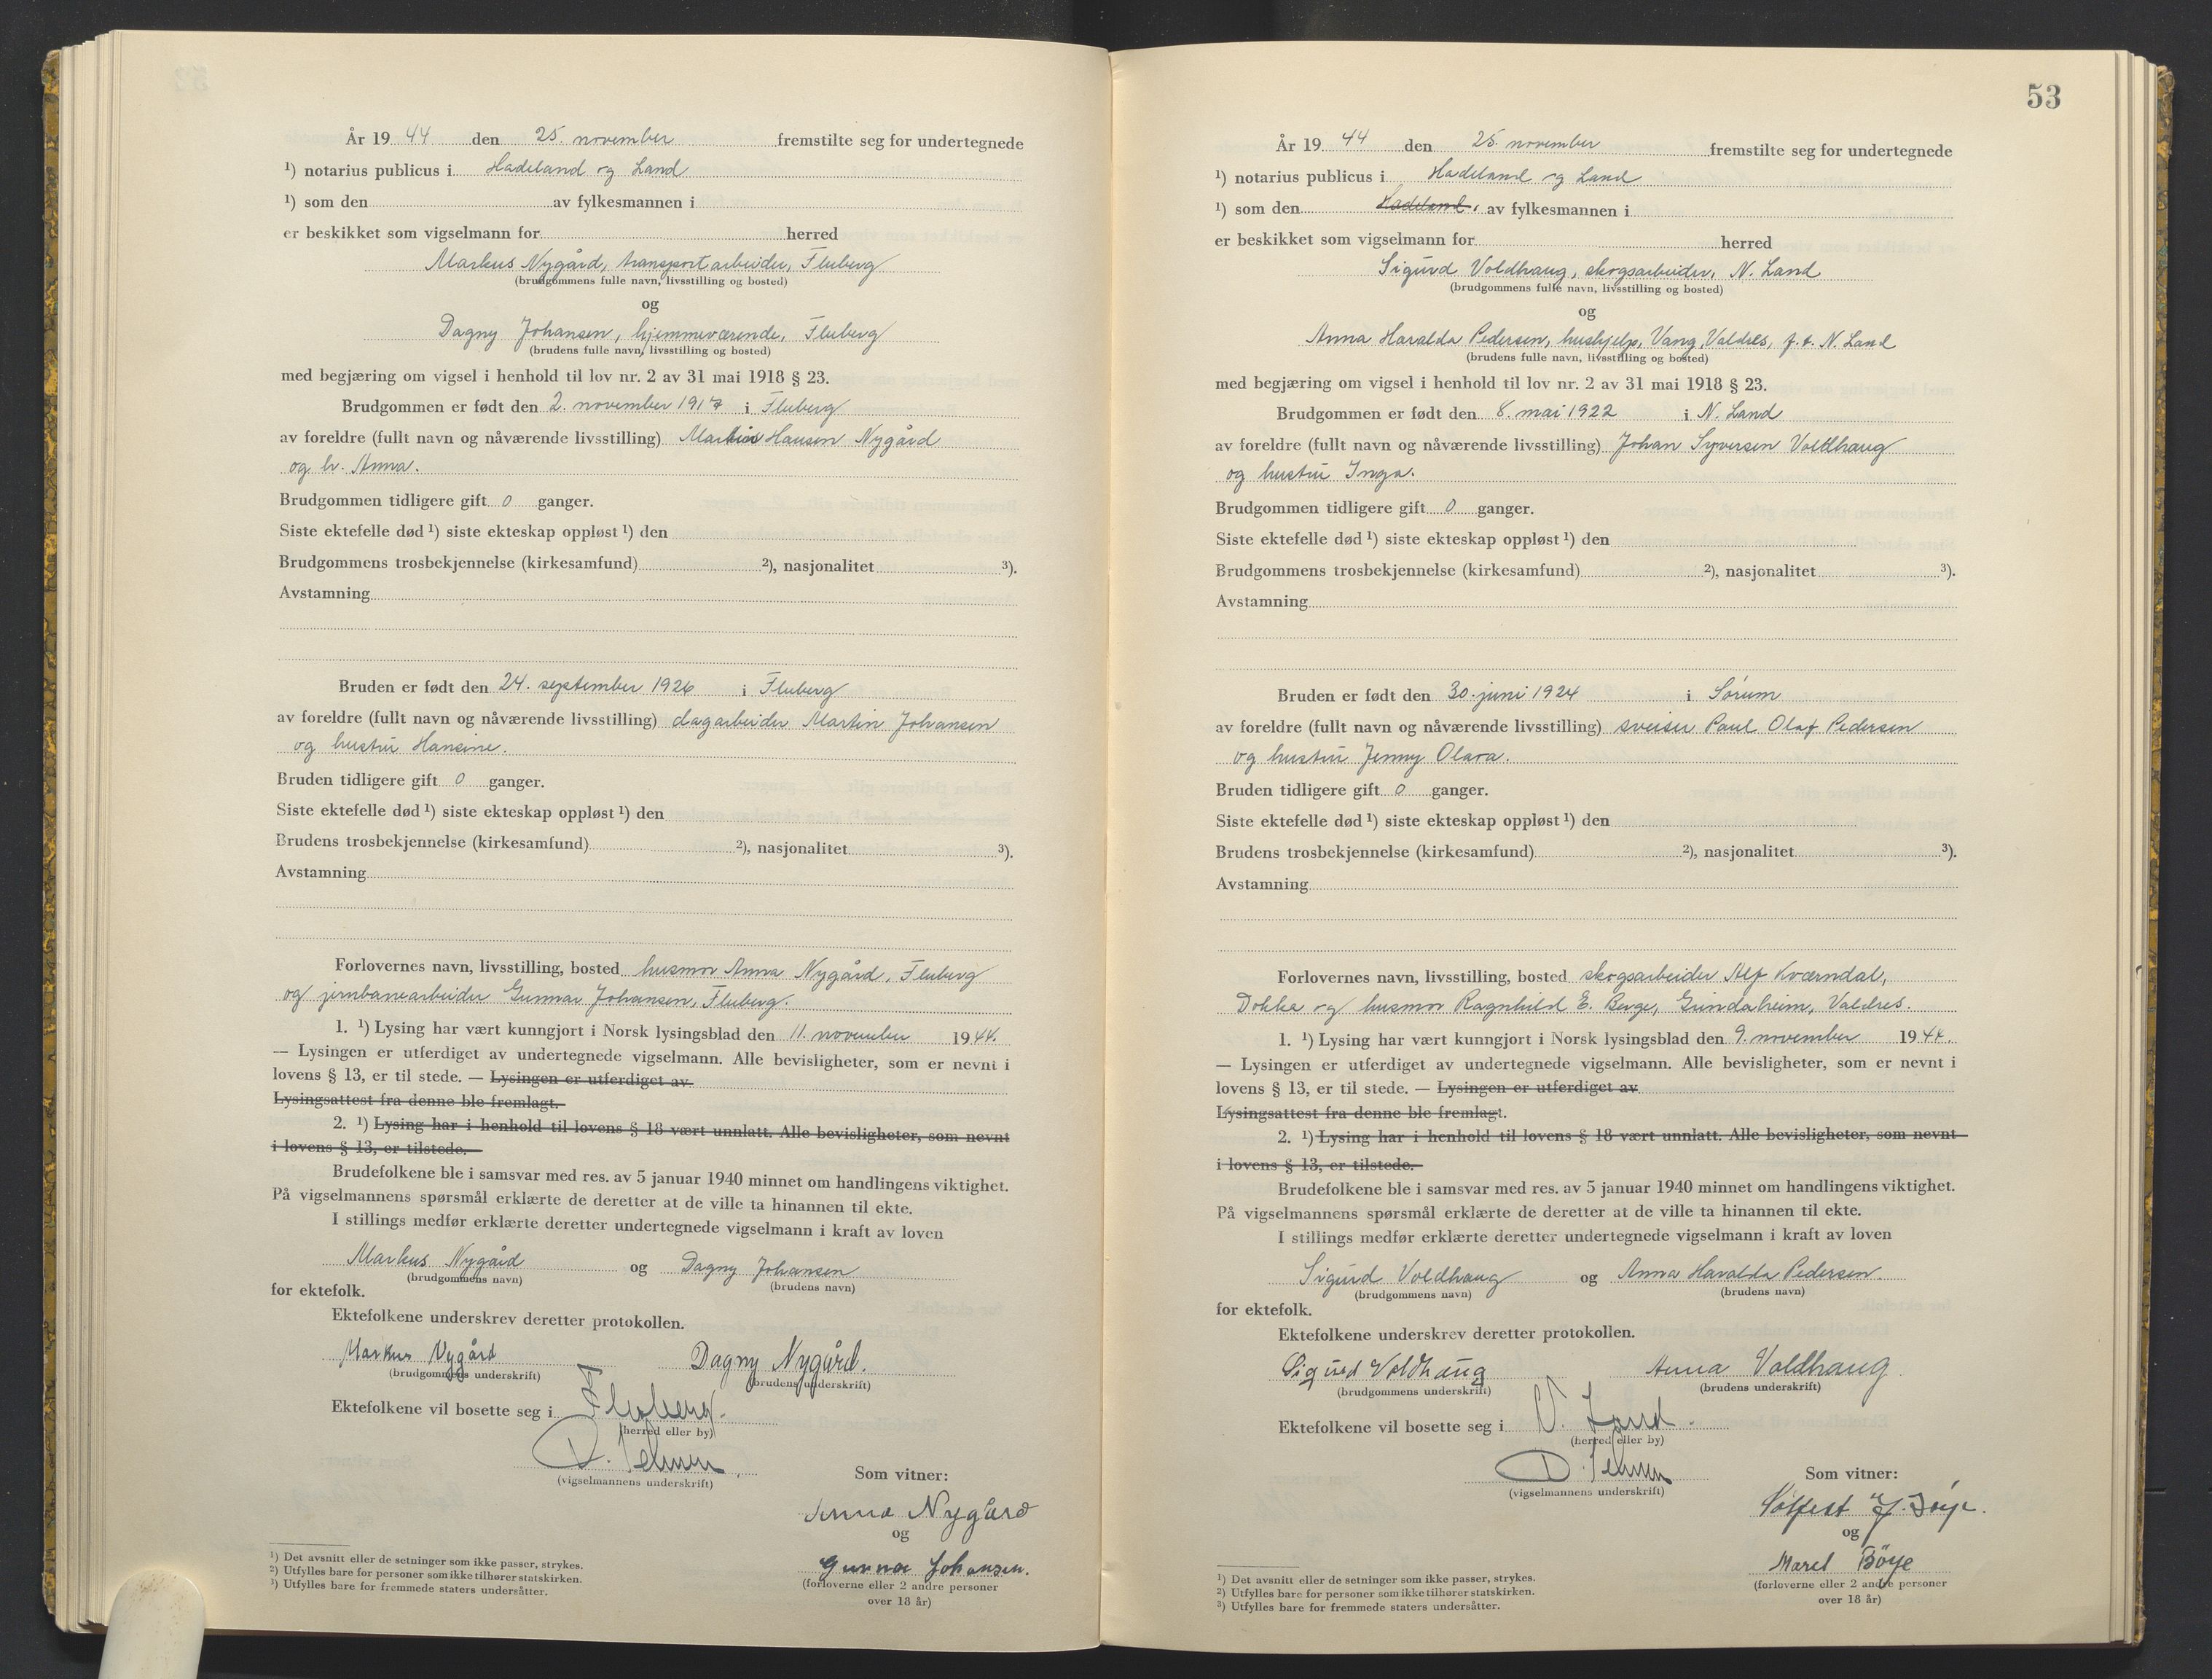 År 19 44 den 25. november fremstilte seg for undertegnede
¹) notarius publicus i Hadeland og Land
¹) som den av fylkesmannen i
er beskikket som vigselmann for herred
Markus Nygård, transportarbeider, Fluberg
(brudgommens fulle navn, livsstilling og bosted)
og
Dagny Johansen, hjemmeværende, Fluberg
(brudens fulle navn, livsstilling og bosted)
med begjæring om vigsel i henhold til lov nr. 2 av 31 mai 1918 § 23.
Brudgommen er født den 2. november 1917 i Fluberg
av foreldre (fullt navn og nåværende livsstilling) Martin Hansen Nygård
og h. Anna.
Brudgommen tidligere gift 0 ganger.
Siste ektefelle død ¹) siste ekteskap oppløst ¹) den
Brudgommens trosbekjennelse (kirkesamfund) ²), nasjonalitet ³).
Avstamning
Bruden er født den 24. september 1926 i Fluberg
av foreldre (fullt navn og nåværende livsstilling) dagarbeider Martin Johansen
og hustru Hansine.
Bruden tidligere gift 0 ganger.
Siste ektefelle død ¹) siste ekteskap oppløst ¹) den
Brudens trosbekjennelse (kirkesamfund) ²), nasjonalitet ³).
Avstamning
Forlovernes navn, livsstilling, bosted husmor Anna Nygård, Fluberg
og jernbanearbeider Gunnar Johansen, Fluberg.
1. ¹) Lysing har vært kunngjort i Norsk lysingsblad den 11. november 1944.
— Lysingen er utferdiget av undertegnede vigselmann. Alle bevisligheter, som er nevnt i
lovens § 13, er til stede. — Lysingen er utferdiget av
Lysingsattest fra denne ble fremlagt.
2. ¹) Lysing har i henhold til lovens § 18 vært unnlatt. Alle bevisligheter, som nevnt
i lovens § 13, er tilstede.
Brudefolkene ble i samsvar med res. av 5 januar 1940 minnet om handlingens viktighet.
På vigselmannens spørsmål erklærte de deretter at de ville ta hinannen til ekte.
I stillings medfør erklærte deretter undertegnede vigselmann i kraft av loven
Markus Nygård og Dagny Johansen
(brudgommens navn) (brudens navn)
for ektefolk.
Ektefolkene underskrev deretter protokollen.
Markus Nygård Dagny Nygård.
(brudgommens underskrift) (brudens underskrift)
Ektefolkene vil bosette seg i Fluberg.
(herred eller by)
(vigselmannens underskrift)
Som vitner:
Anna Nygård
og
Gunnar Johansen.
(forloverne eller 2 andre personer
over 18 år)
¹) Det avsnitt eller de setninger som ikke passer, strykes.
²) Utfylles bare for personer som ikke tilhører statskirken.
³) Utfylles bare for fremmede staters undersåtter.
53
År 19 44 den 25. november fremstilte seg for undertegnede
¹) notarius publicus i Hadeland og Land
¹) som den Hadeland. av fylkesmannen i
er beskikket som vigselmann for herred
Sigurd Voldhaug, skogsarbeider, N. Land
(brudgommens fulle navn, livsstilling og bosted)
og
Anna Haralda Pedersen, hushjelp, Vang, Valdres, f. t. N. Land
(brudens fulle navn, livsstilling og bosted)
med begjæring om vigsel i henhold til lov nr. 2 av 31 mai 1918 § 23.
Brudgommen er født den 8. mai 1922 i N. Land
av foreldre (fullt navn og nåværende livsstilling) Johan Syversen Voldhaug
og hustru Inga.
Brudgommen tidligere gift 0 ganger.
Siste ektefelle død ¹) siste ekteskap oppløst ¹) den
Brudgommens trosbekjennelse (kirkesamfund) ²), nasjonalitet ³).
Avstamning
Bruden er født den 30. juni 1924 i Sørum
av foreldre (fullt navn og nåværende livsstilling) sveiser Paul Olaf Pedersen
og hustru Jenny Olara.
Bruden tidligere gift 0 ganger.
Siste ektefelle død ¹) siste ekteskap oppløst ¹) den
Brudens trosbekjennelse (kirkesamfund) ²), nasjonalitet ³).
Avstamning
Forlovernes navn, livsstilling, bosted skogsarbeider Alf Kværndal,
Dokka og husmor Ragnhild E. Berge, Grindaheim, Valdres.
1. ¹) Lysing har vært kunngjort i Norsk lysingsblad den 9. november 1944.
— Lysingen er utferdiget av undertegnede vigselmann. Alle bevisligheter, som er nevnt i
lovens § 13, er til stede. — Lysingen er utferdiget av
Lysingsattest fra denne ble fremlagt.
2. ¹) Lysing har i henhold til lovens § 18 vært unnlatt. Alle bevisligheter, som nevnt
i lovens § 13, er tilstede.
Brudefolkene ble i samsvar med res. av 5 januar 1940 minnet om handlingens viktighet.
På vigselmannens spørsmål erklærte de deretter at de ville ta hinannen til ekte.
I stillings medfør erklærte deretter undertegnede vigselmann i kraft av loven
Sigurd Voldhaug og Anna Haralda Pedersen.
(brudgommens navn) (brudens navn)
for ektefolk.
Ektefolkene underskrev deretter protokollen.
Sigurd Voldhaug Anna Voldhaug
(brudgommens underskrift) (brudens underskrift)
Ektefolkene vil bosette seg i N. Land.
(herred eller by)
(vigselmannens underskrift)
Som vitner:
og
Marel Böye
(forloverne eller 2 andre personer
over 18 år)
¹) Det avsnitt eller de setninger som ikke passer, strykes.
²) Utfylles bare for personer som ikke tilhører statskirken.
³) Utfylles bare for fremmede staters undersåtter.